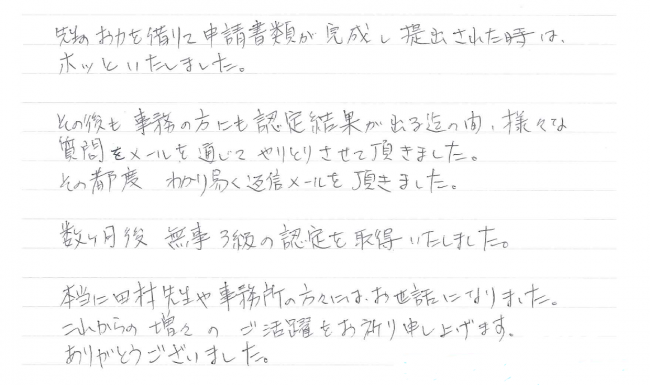 先生のお力を借りて申請書類が完成し提出された時は、
ホッといたしました。
その後も事務の方にも認定結果が出る迄の間、様々な
質問をメールを通じてやりとりさせて頂きました。
その都度 わかり易く返信メールを頂きました。
数ヶ月後 無事3級の認定を取得いたしました。
本当に田村先生や事務所の方々には、お世話になりました。
これからの増々のご活躍をお祈り申し上げます。
ありがとうございました。